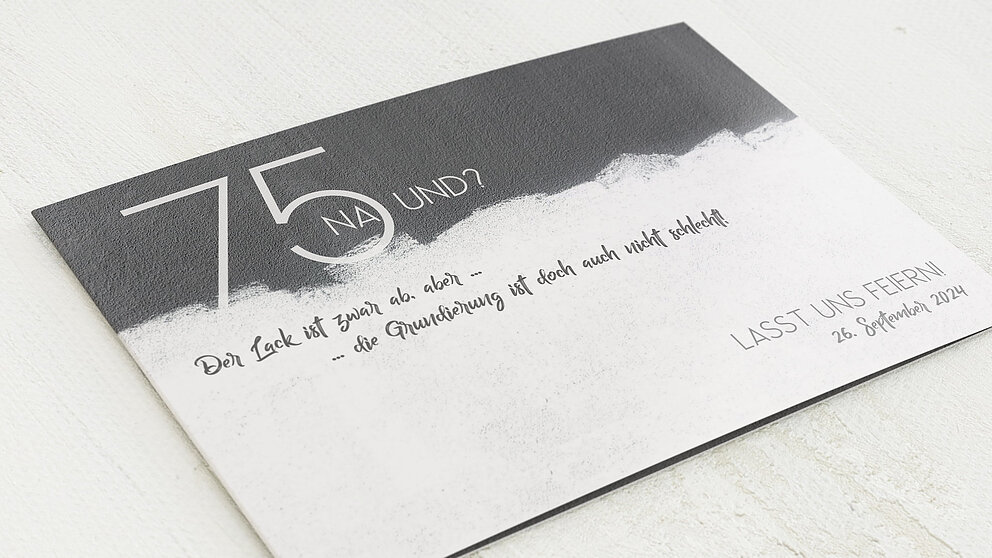 75
NA UND?
Der Lack ist zwar ab, aber ...
... die Grundierung ist doch auch nicht schlecht!
LASST UNS FEIERN!
26. September 2024